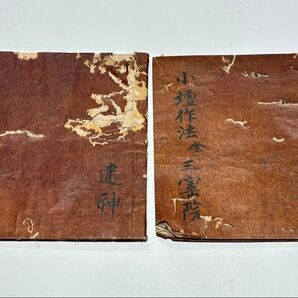 小壇作法 全 三宝院
逮神